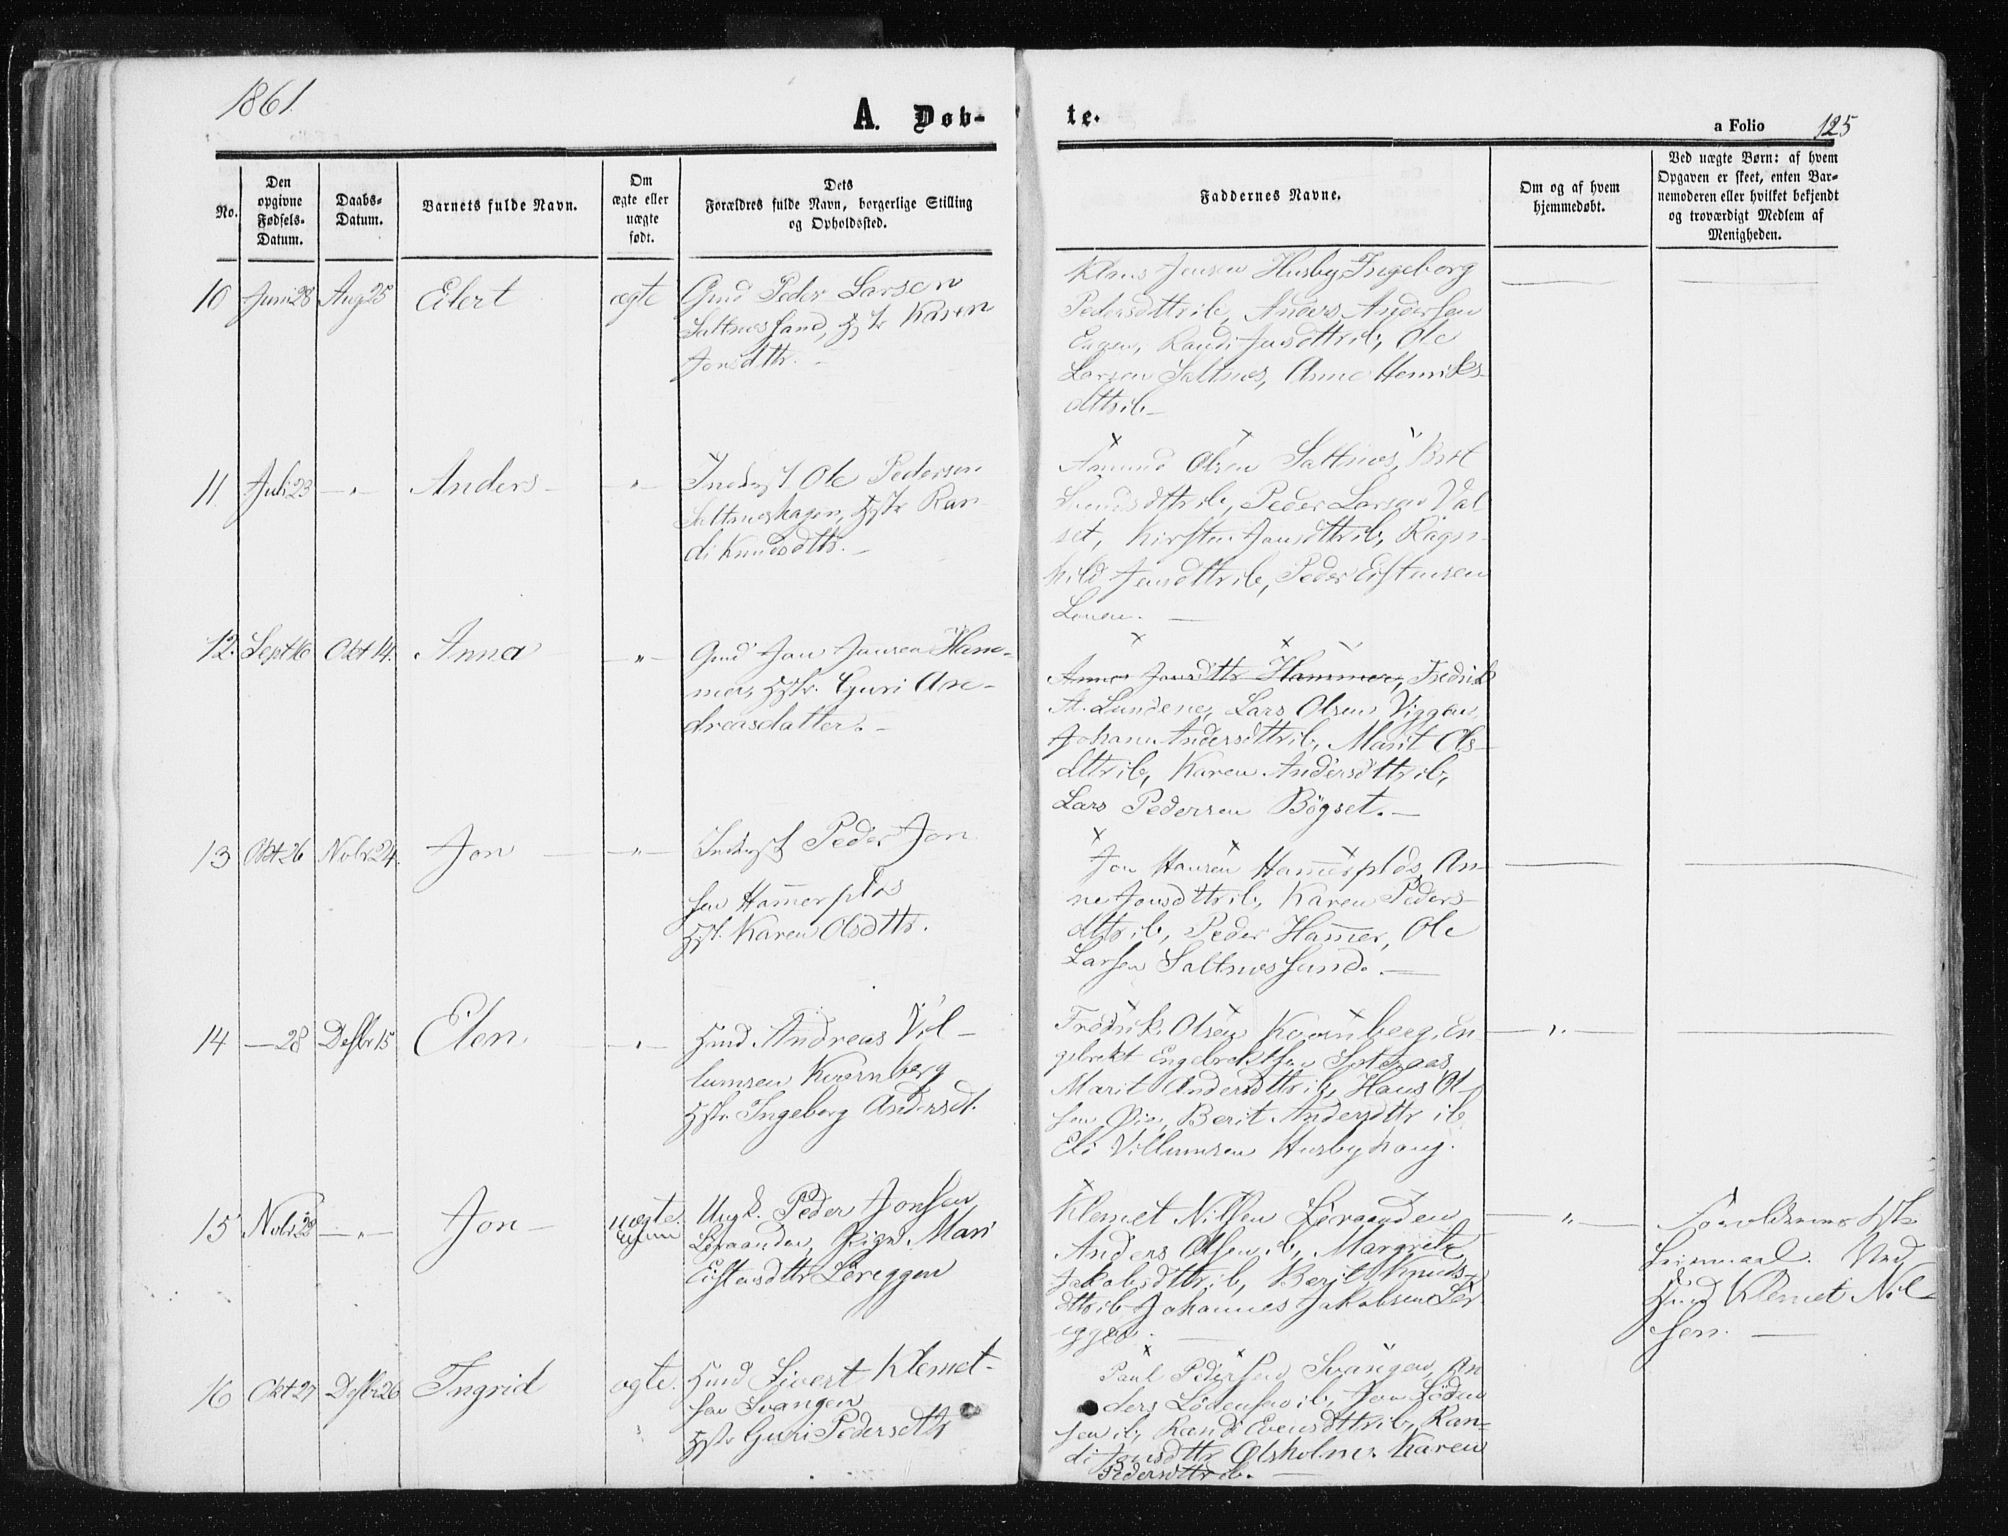 1861.
A. Døb-
te.
a Folio 125
No.
Den
opgivne
Fødsels-
Datum.
Daabs-
Datum.
Barnets fulde Navn.
Om
ægte eller
uægte
født.
Dets
Forældres fulde Navn, borgerlige Stilling
og Opholdssted.
Faddernes Navne.
Om og af hvem
hjemmedøbt.
Ved uægte Børn: af hvem
Opgaven er skeet, enten Bar-
nemoderen eller hvilket bekjendt
og troværdigt Medlem af
Menigheden.
10 Juni 28 Aug 25 Eilert ægte
Gmd Peder Larsen
Saltnessand, Karen
Jonsdttr. -
Klaus Jensen Husby, Ingeborg
Pedersdttr ib, Anders Andersen
Randi Jensdttr ib, Ole
Larsen Saltnes, Anne Henriks-
dttr ib -
11 Juli 23 -"- Anders - -"-
Inds Ole Pedersen
Ran-
di Knudsdttr. -
Amund Olsen Saltnes, Brit
ib, Peder Larsen Val-
set, Kirsten Jonsdttr ib, Ragn-
hild Jensdttr ib, Peder Eistensen
12. Sept 16 Okt 14. Anna -"-
Gmd Jon Jonsen Ham-
mer, Hstr. Guri An-
dreasdatter. -
Anne Jonsdttr Hammer, Fredrik
A. Lundene, Lars Olsen Viggen,
Johan Andersdttr ib, Marit Ols-
dttr ib, Karen Andersdttr ib,
Lars Pedersen Bøgset. -
13 Okt 26 Nobr 24. Jon -"-
Inds Peder Jon
sen Hammerplds
Karen Olsdttr.
Jon Hansen Hammerplds, An-
ne Jonsdttr ib, Karen Peders-
dttr ib, Peder Hammer, Ole
Larsen Saltnessand. -
14 - 28 Desbr 15 Elen -"-
Hmd Andreas Vil-
lumsen Kvernberg
Hstr Ingeborg Andersdt.
Fredrik Olsen Kvernberg, En-
gebrekt Engebrektsen
Marit Andersdttr ib, Hans Ol-
sen Øie, Berit Andersdttr ib
Eli Villumsen Husbyhaug.
-"-
15 Nobr 28 -"- Jon - uægte
Ungk. Peder Jonsen
Leraanden, Pige Mari
Eistensdttr Lereggen
Klemet Nilsen Leraanden
Anders Olsen ib, Margrete
Jakobsdttr ib, Berit Knuds-
dttr ib Johannes Jakobsen Ler-
eggen. -
-"-
Forældrenes 1ste
Leiermaal. Ved
Hmd Klemet Nil-
sen. -
16 Okt 27 Desbr 26 Ingrid ægte.
Hmd Sivert Klemet-
sen Svangen
Hstr Guri Pedersdttr
Paul Pedersen Svangen, An-
ders Lodensen ib, Jon Loden-
sen ib, Randi Evensdttr ib, Ran-
di Jonsdttr Ølsholm. Karen
Pedersdttr ib. -